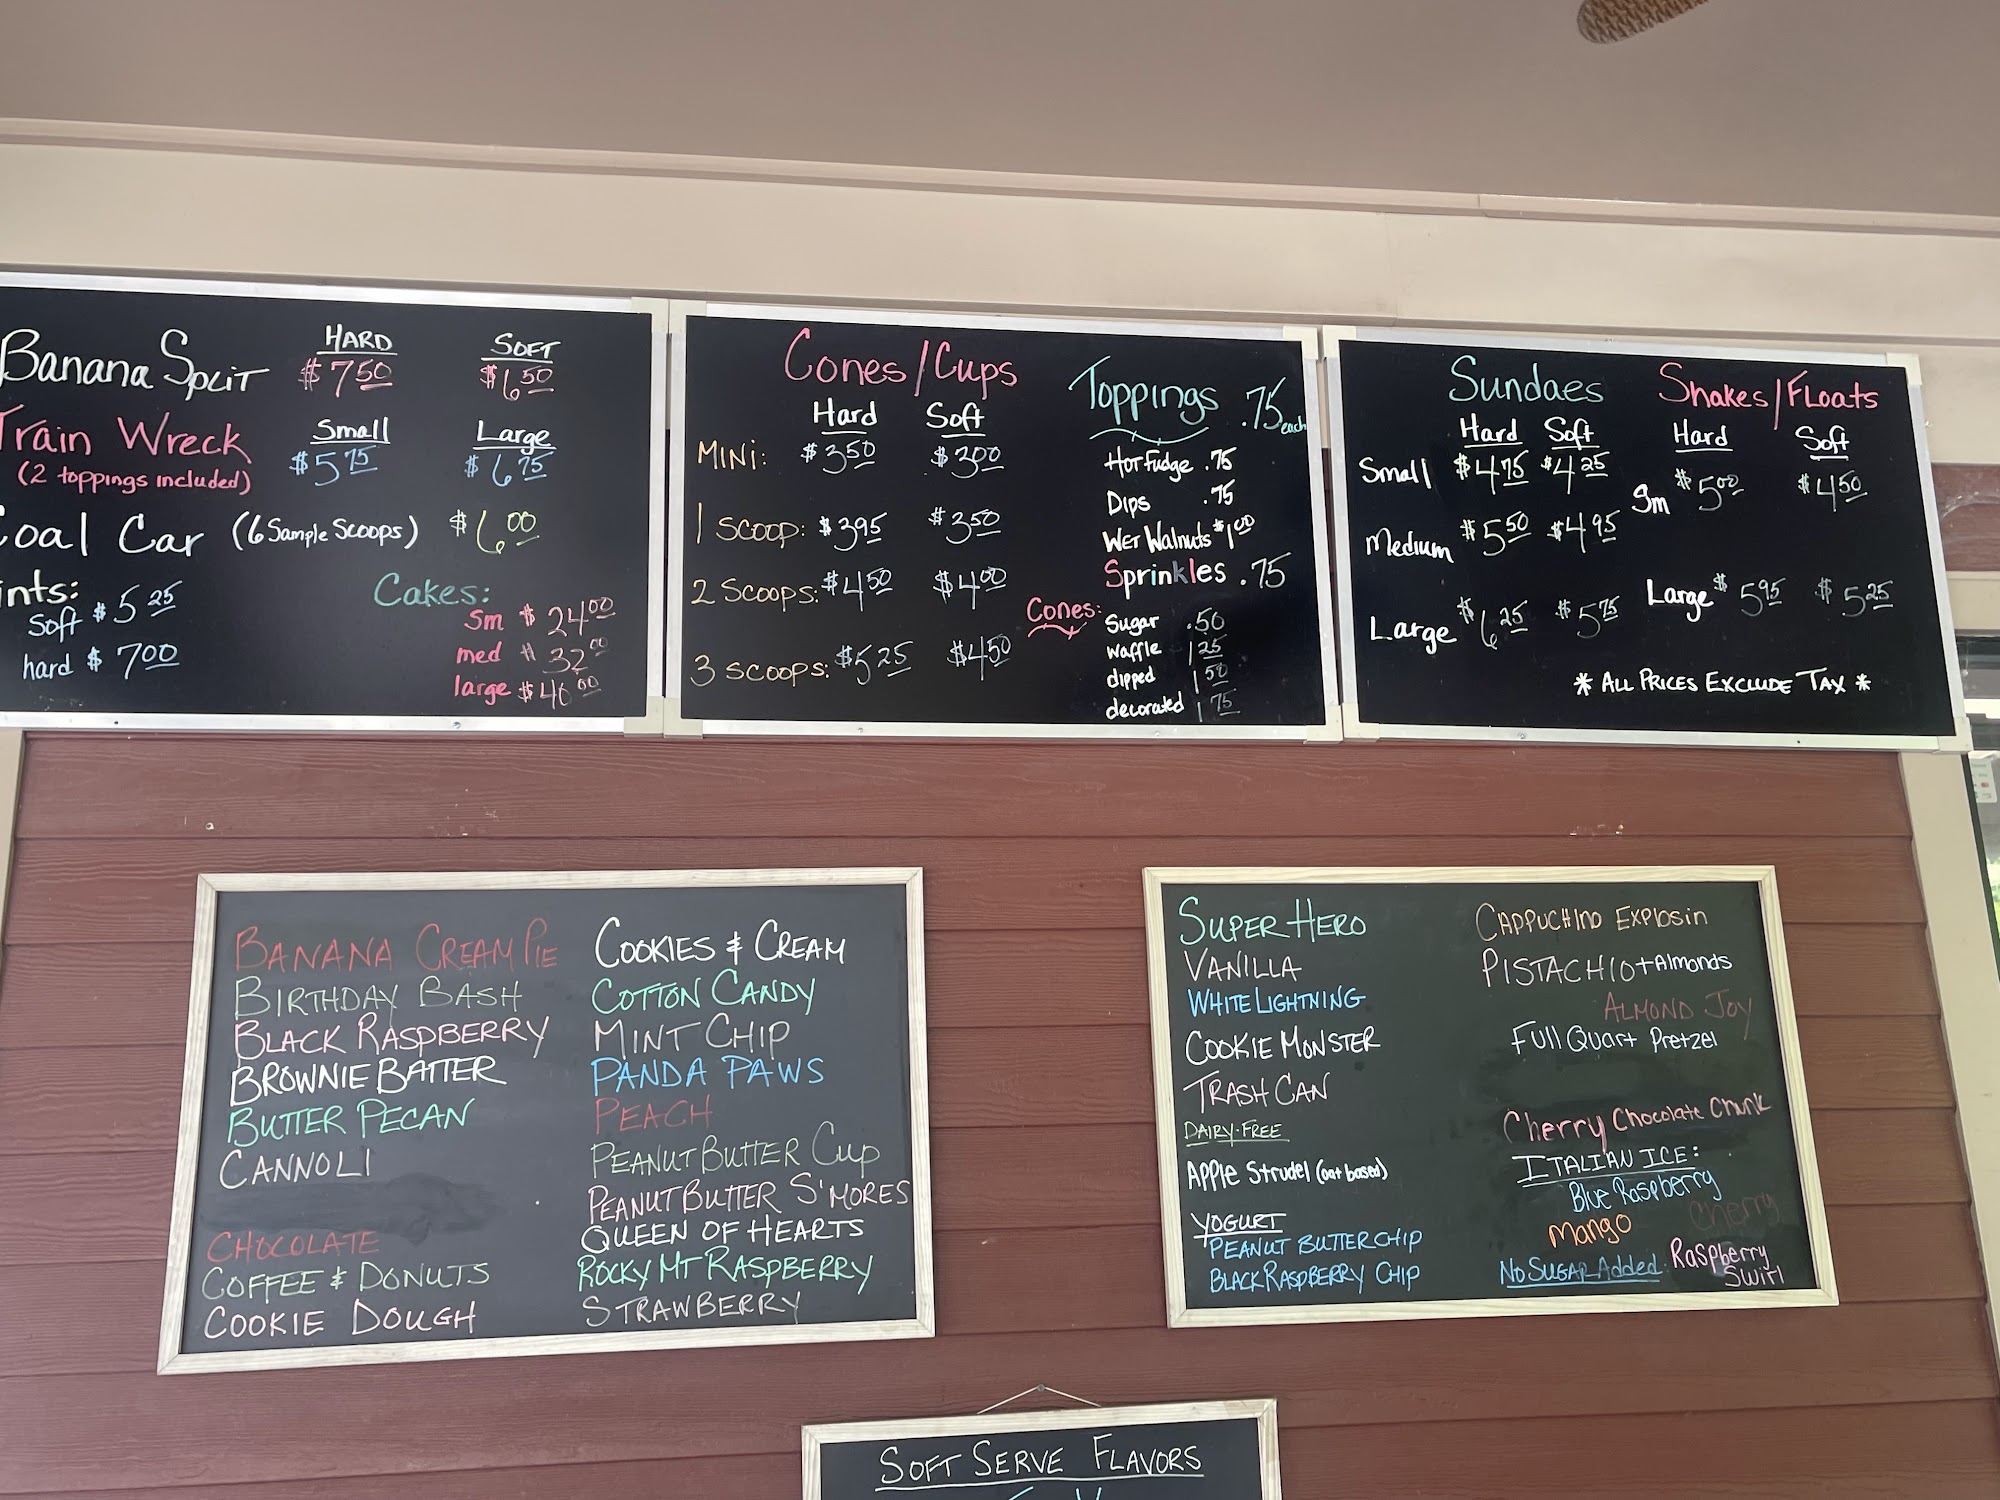 Banana Split
HARD
$7.50
SOFT
$6.50
Train Wreck
(2 toppings included)
Small
$5.75
Large
$6.75
Coal Car (6 Sample Scoops) $6.00
ints:
Soft $5.25
hard $7.00
Cakes:
Sm $24.00
med $32.00
large $40.00
Cones/Cups
Hard Soft
MINi: $3.50 $3.00
1 SCOOP: $3.95 $3.50
2 SCOOPS: $4.50 $4.00
3 SCOOPS: $5.25 $4.50
Toppings .75 each
Hot Fudge .75
Dips .75
Wet Walnuts $1.00
Sprinkles .75
Cones:
Sugar .50
waffle 1.25
dipped 1.50
decorated 1.75
Sundaes
Hard Soft
Small $4.75 $4.25
Medium $5.50 $4.95
Large $6.25 $5.75
Shakes/Floats
Hard Soft
Sm $5.00 $4.50
Large $5.95 $5.25
* ALL PRICES EXCLUDE TAX *
BANANA CREAM PIE
BIRTHDAY BASH
BLACK RASPBERRY
BROWNIE BATTER
BUTTER PECAN
CANNOLI
CHOCOLATE
COFFEE & DONUTS
COOKIE DOUGH
COOKIES & CREAM
COTTON CANDY
MINT CHIP
PANDA PAWS
PEACH
PEANUT BUTTER CUP
PEANUT BUTTER S'MORES
QUEEN OF HEARTS
ROCKY MT RASPBERRY
STRAWBERRY
SUPER HERO
VANILLA
WHITE LIGHTNING
COOKIE MONSTER
TRASH CAN
DAIRY-FREE
Apple Strudel (oat based)
YOGURT
PEANUT BUTTER CHIP
BLACK RASPBERRY CHIP
CAPPUCHINO EXPLOSIN
PISTACHIO + Almonds
ALMOND JOY
Full Quart Pretzel
Cherry Chocolate Chunk
ITALIAN ICE:
Blue Raspberry
Mango
Cherry
No SUGAR Added: Raspberry
Swirl
SOFT SERVE FLAVORS